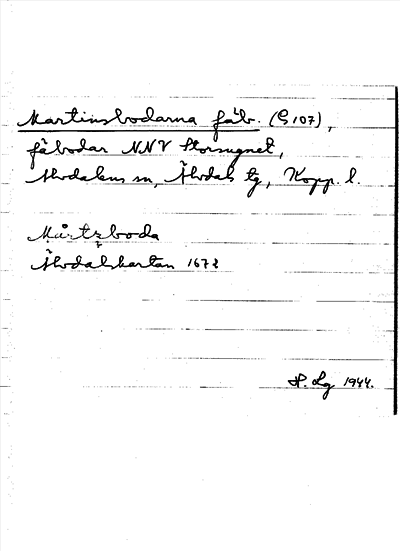 Martinsbodarna fäb. (S 107),
fäbodar NNV Storsugnet,
Älvdalens sn, Älvdals tg, Kopp. l.
Mårtzboda
Älvdalskartan 1672
H. Lg 1944.